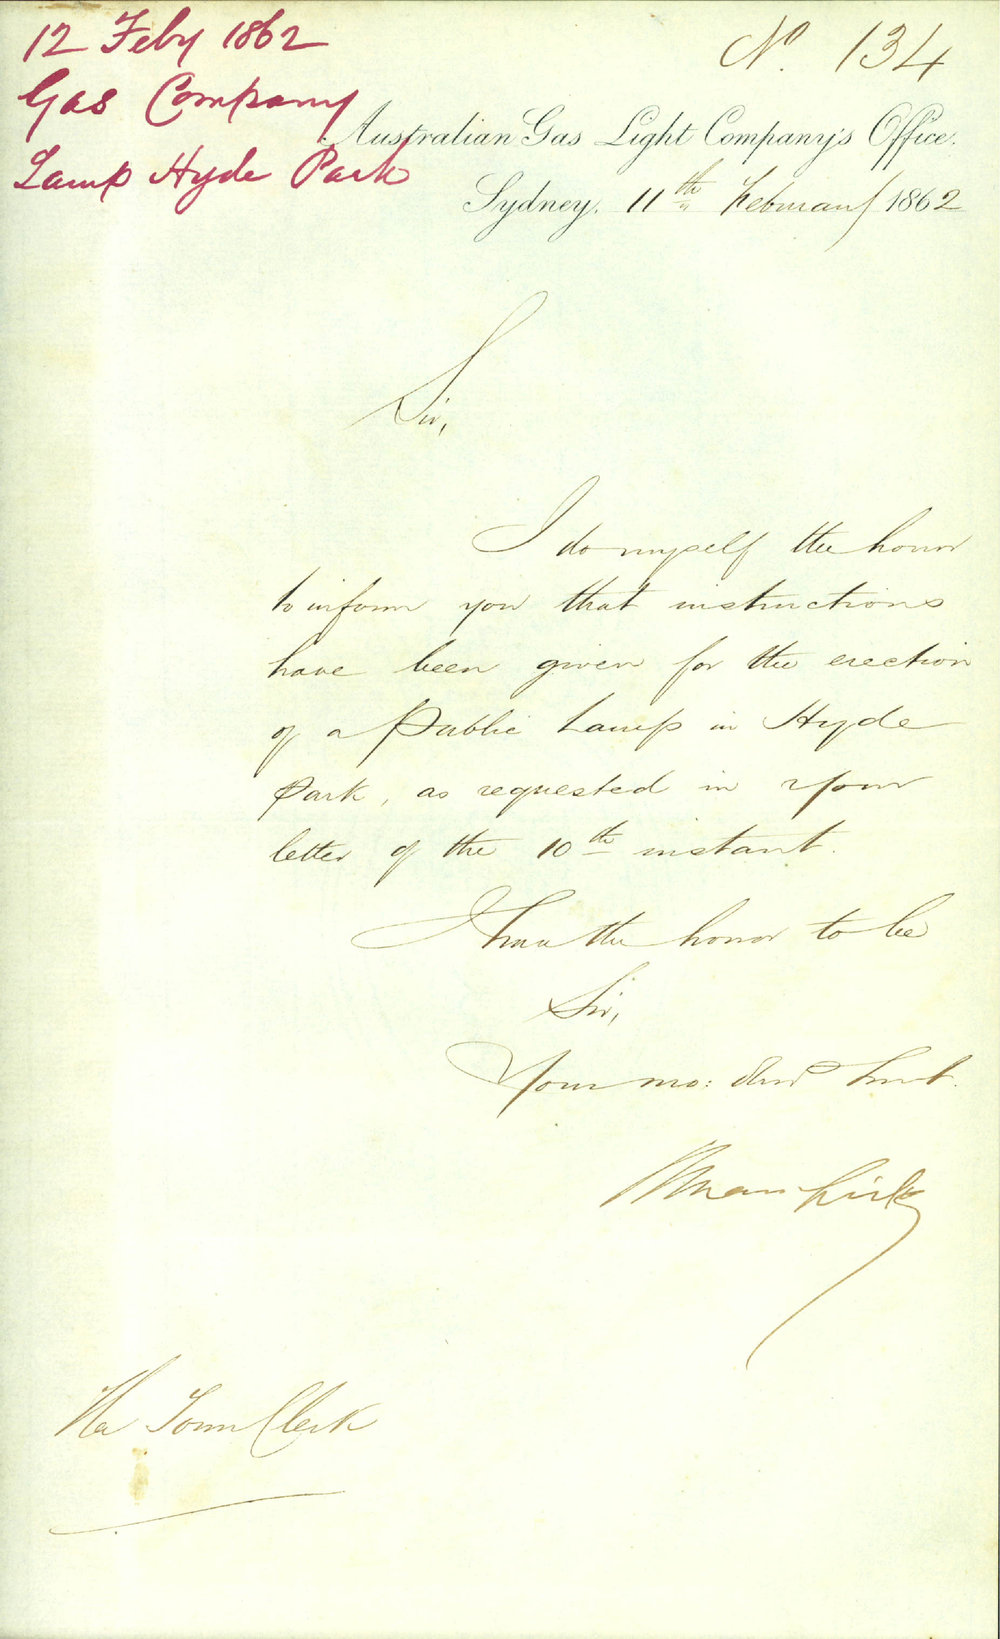 12 Feby 1862
Gas Company
Lamp Hyde Park
No. 134
Australian Gas Light Company's Office.
Sydney, 11th February 1862
Sir,
I do myself the honor
to inform you that instructions
have been given for the erection
of a Public Lamp in Hyde
Park, as requested in your
letter of the 10th instant.
I have the honor to be
Sir,
Your mo: Obed Servt.
The Town Clerk